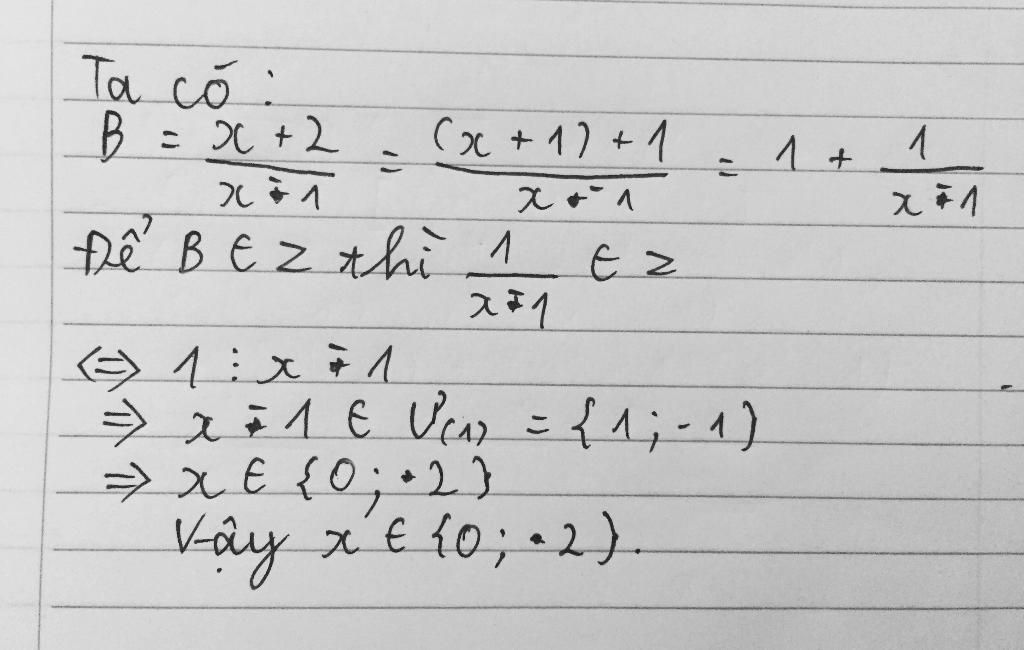 Ta có:
B = \frac{x + 2}{x - 1} = \frac{(x + 1) + 1}{x - 1} = 1 + \frac{1}{x - 1}
Để B ∈ Z thì \frac{1}{x - 1} ∈ Z
⇔ 1 ⋮ x - 1
⇒ x - 1 ∈ Ư(1) = {1; -1}
⇒ x ∈ {0; 2}
Vậy x ∈ {0; 2}.